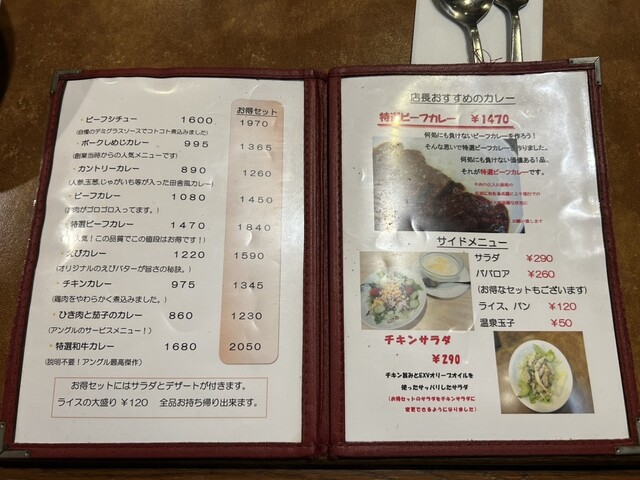 お得セット
・ビーフシチュー 1600 1970
(自慢のデミグラスソースでコトコト煮込みました)
・ポークしめじカレー 995 1365
(創業当時からの人気メニューです)
・カントリーカレー 890 1260
(人参玉葱じゃがいも等が入った田舎風カレー)
ビーフカレー 1080 1450
肉がゴロゴロ入ってます。)
特選ビーフカレー 1470 1840
人気！この品質でこの値段はお得です！)
えびカレー 1220 1590
(オリジナルのえびバターが旨さの秘訣。)
チキンカレー 975 1345
(鶏肉をやわらかく煮込みました。)
・ひき肉と茄子のカレー 860 1230
(アングルのサービスメニュー！)
・特選和牛カレー 1680 2050
(説明不要！アングル最高傑作)
お得セットにはサラダとデザートが付きます。
ライスの大盛り ¥120 全品お持ち帰り出来ます。
店長おすすめのカレー
特選ビーフカレー ¥1470
何処にも負けないビーフカレーを作ろう！
そんな思いで特選ビーフカレーを作りました。
何処にも負けない価値ある1品、
それが特選ビーフカレーです。
サイドメニュー
サラダ ¥290
ババロア ¥260
(お得なセットもございます)
ライス、パン ¥120
温泉玉子 ¥50
チキンサラダ
¥290
チキン旨みとEXVオリーブオイルを
使ったサッパリしたサラダ
(お得セットのサラダをチキンサラダに
変更できるようになりました)